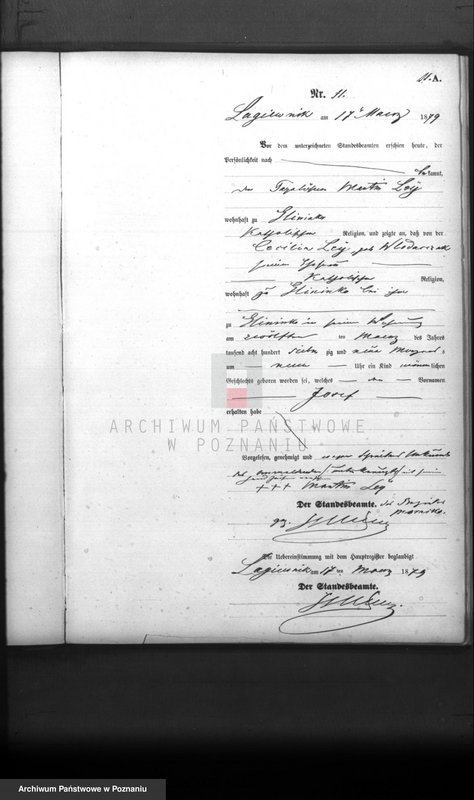 11.A.
Nr. 11.
Lagiewnik am 17t Maerz 1879
Vor dem unterzeichneten Standesbeamten erschien heute, der
Persönlichkeit nach
bekannt,
der Tagelöhner Martin Ley
wohnhaft zu Glininko
Katholischer Religion, und zeigte an, daß von der
Cecilia Ley geb Wlodarczak
seiner Ehefrau
Katholischer Religion,
wohnhaft zu Glininko bei ihm
zu Glininko in seiner Wohnung
am zwölften ten Maerz des Jahres
tausend acht hundert sieben zig und neun
um neun Uhr ein Kind männlichen
Geschlechts geboren worden sei, welches den Vornamen
Josef
erhalten habe
Vorgelesen, genehmigt und wegen Schreibens
des
+++ Martin Ley
Der Standesbeamte.
gz.
Die Uebereinstimmung mit dem Hauptregister beglaubigt
Lagiewnik am 17 ten Maerz 1879
Der Standesbeamte.
ARCHIWUM PAŃSTWOWE
W POZNANIU
Archiwum Państwowe w Poznaniu